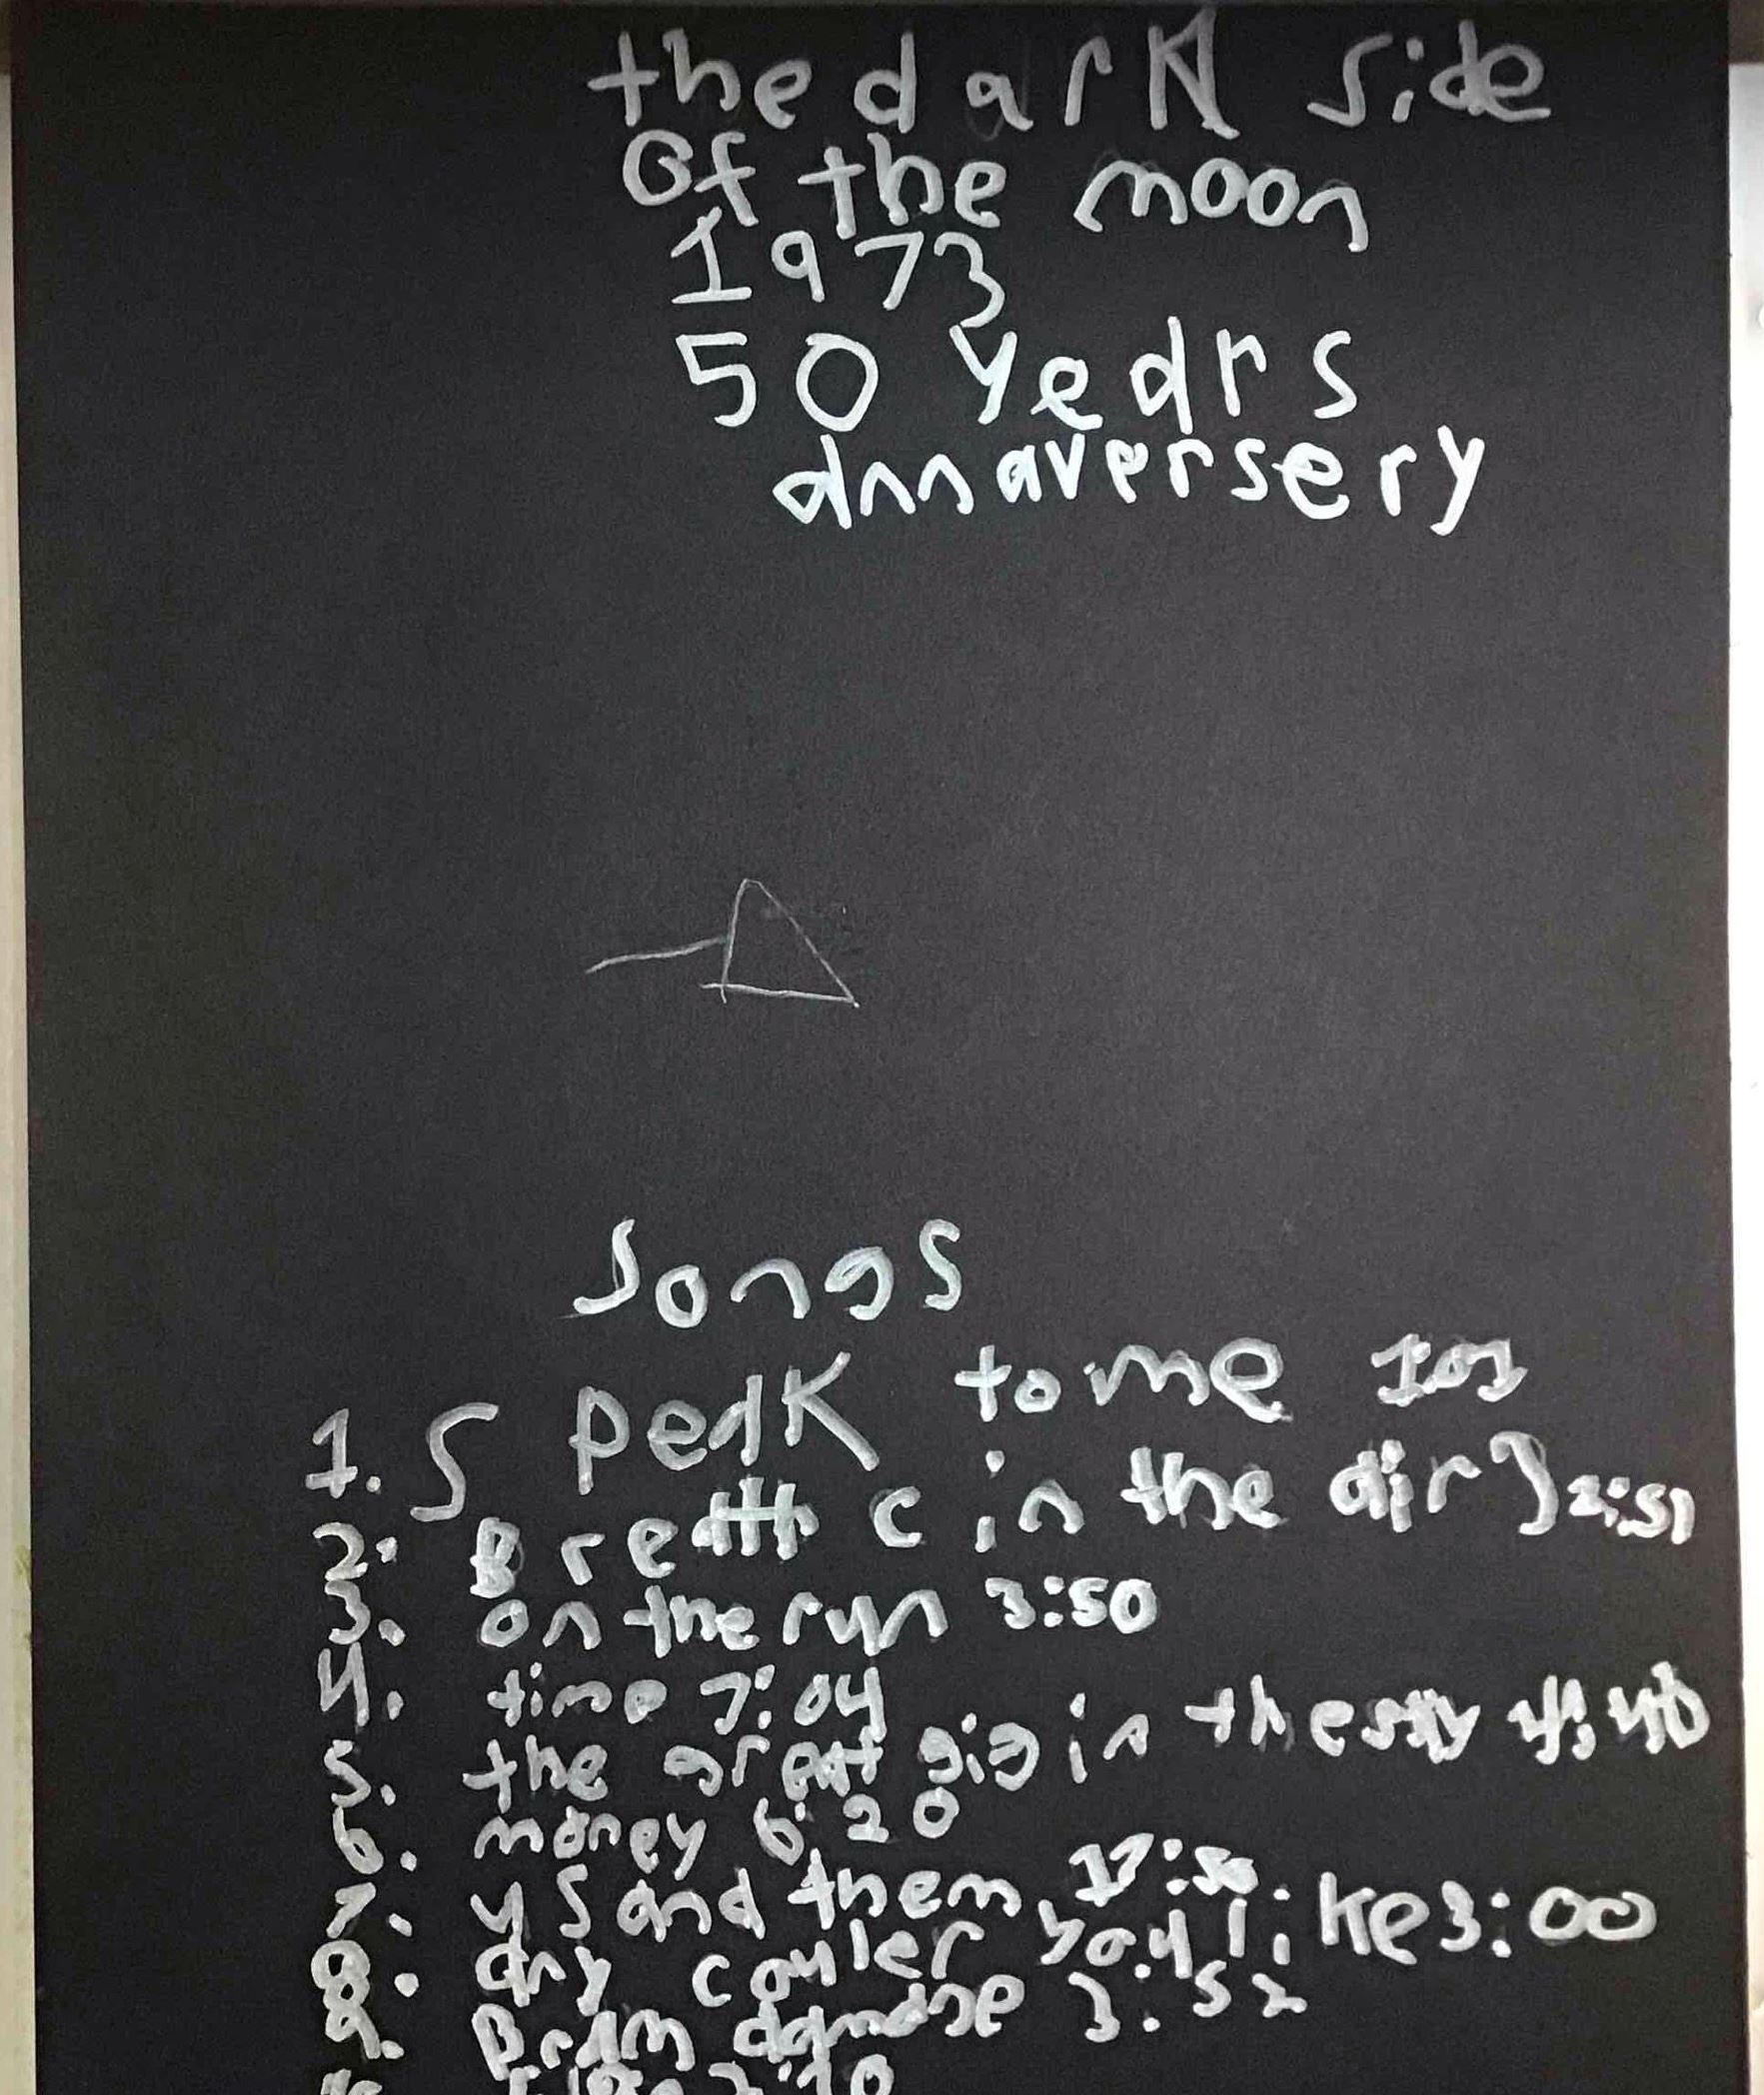 the dark side
Of the moon
1973
50 years
annaversery
Songs
1. Speak to me 1:01
2. Breath ( in the air ) 2:51
3. on the run 3:50
4. time 7:04
5. the great gig in the sky 4:40
6. money 6:20
7. us and them
8. any couler you like 3:00
9. damage 3:52